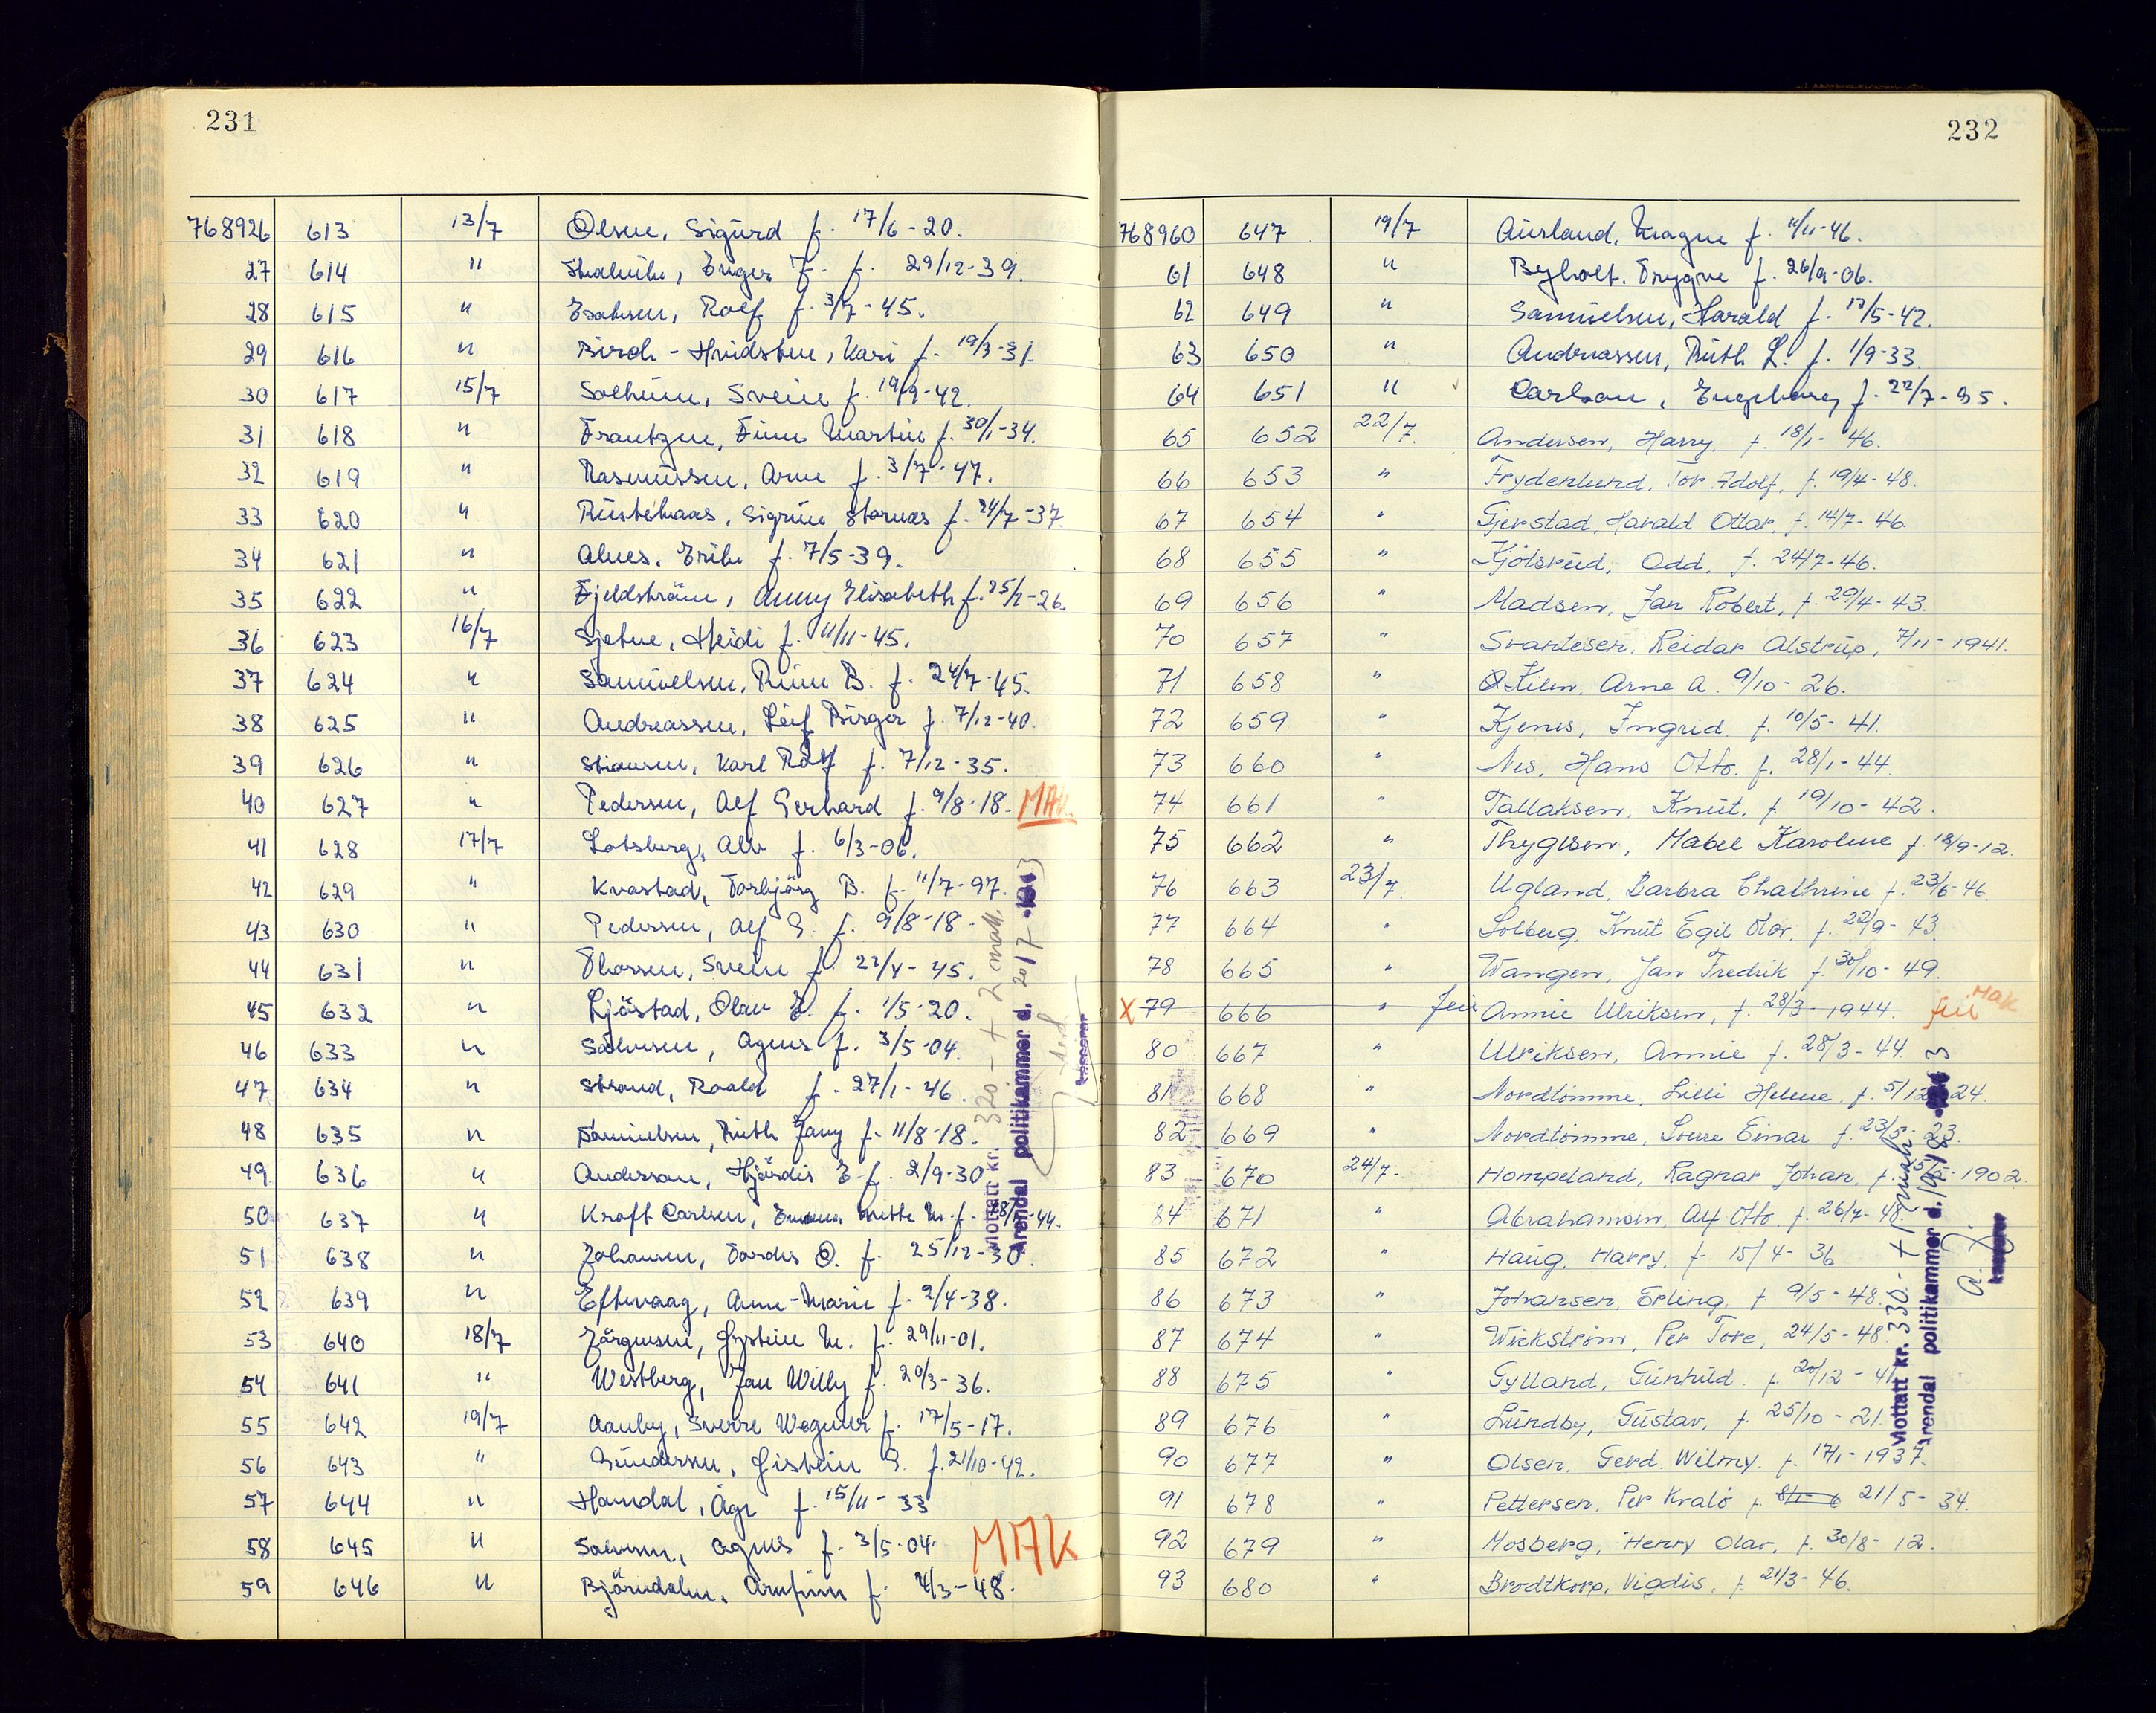 231
768926 613 13/7 Olsen, Sigurd f. 17/6-20.
27 614 " Inger f. 29/12-39.
28 615 " Rolf f. 3/7-45.
29 616 " Birch-Hvidsten, Kari f. 19/3-31
30 617 15/7 Solheim, Svein f. 19/9-42.
31 618 " Frantzen, Finn Martin f. 30/1-34.
32 619 " Rasmussen, Arne f. 3/7-47.
33 620 " Sigrun f. 24/7-37
34 621 " Alnes, Erik f. 7/5-39.
35 622 " Anny Elisabeth f. 25/2-26.
36 623 16/7 Heidi f. 11/11-45.
37 624 " Samuelsen, B. f. 24/7-45.
38 625 " Andreassen, Leif Birger f. 7/12-40.
39 626 " Karl Rolf f. 7/12-35.
40 627 " Pedersen, Alf Gerhard f. 9/8-18. MAK.
41 628 17/7 Lotsberg, Alv f. 6/3-06.
42 629 " Kvastad, Torbjörg B. f. 11/7-97.
43 630 " Pedersen, Alf G. f. 9/8-18-
44 631 " Thorsen, Svein f. 22/4-45.
45 632 " Ljöstad, Olav E. f. 1/5-20.
46 633 " Salvesen, Agnes f. 3/5-04.
47 634 " Strand, Roald f. 27/1-46.
48 635 " Samuelsen, Ruth Jany f. 11/8-18.
49 636 " Anderson, Hjördis E. f. 2/9-30
50 637 " Kroft Carlsen, Mette M. f. -44.
51 638 " Johansen, Tordis O. f. 25/12-30.
52 639 " Eftevaag, Anne-Marie f. 2/4-38.
53 640 18/7 Jörgensen, Öystein M. f. 29/11-01.
54 641 " Westberg, Jan Willy f. 20/3-36.
55 642 19/7 Aanby, Sverre Wegner f. 17/5-17.
56 643 " Gundersen, Öistein G. f. 21/10-42.
57 644 " Hamdal, Åge f. 15/11-33
58 645 " Salvesen, Agnes f. 3/5-04. MAK
59 646 " Björndalen, Arnfinn f. 4/3-48.
Mottatt kr. 320.- + 2 mak.
Arendal politikammer d. 20/7
Kasserer
232
768960 647 19/7 Aursland, Magne f. 11/11-46.
61 648 " Byholt, Trygve f. 26/9-06.
62 649 " Samuelsen, Harald f. 17/5-42.
63 650 " Andreassen, Ruth L. f. 1/9-33.
64 651 " Carlson, Engebörg f. 22/7-95.
65 652 22/7. Andersen, Harry. f. 18/1-46.
66 653 " Frydenlund, Tor Adolf, f. 19/4-48.
67 654 " Gjerstad, Harald Ottar, f. 14/7-46.
68 655 " Kjölsrud, Odd, f. 24/7-46.
69 656 " Madsen, Jan Robert, f. 29/4-43.
70 657 " Svartesen, Reidar Alstrup, 7/11-1941.
71 658 " Kilen, Arne A. 9/10-26.
72 659 " Kjenes, Ingrid. f. 10/5-41.
73 660 " Nes, Hans Otto. f. 28/1-44.
74 661 " Tallaksen, Knut. f. 19/10-42.
75 662 " Thygesen, Mabel Karoline f. 18/9-12.
76 663 23/7. Ugland, Barbra Chathrine f. 23/6-46.
77 664 " Solberg, Knut Egil Olav, f. 22/9-43.
78 665 " Wangen, Jan Fredrik f. 30/10-49.
X 79 666 " feil Annie Ulriksen, f. 28/3-1944. feil MAK
80 667 " Ulriksen, Annie f. 28/3-44.
81 668 " Nordtömme, Lilli Helene, f. 5/12-24.
82 669 " Nordtömme, Einar f. 23/5-23.
83 670 24/7- Hompeland, Ragnar Johan, f. -1902.
84 671 " Abrahamsen, Alf Otto f. 26/7-48.
85 672 " Haug, Harry, f. 15/4-36
86 673 " Johansen, Erling, f. 9/5-48.
87 674 " Wickström, Per Tore, 24/5-48.
88 675 " Gylland, Gunhild. f. 20/12-41.
89 676 " Lundby, Gustav, f. 25/10-21.
90 677 " Olsen, Gerd. Wilmy. f. 17/1-1937.
91 678 " Pettersen, Per Kralö f. 21/5-34.
92 679 " Mosberg, Henry Olav, f. 30/8-12.
93 680 " Brodtkorp, Vigdis, f. 21/3-46.
Mottatt kr. 330.- + 1 mak
Arendal politikammer d.